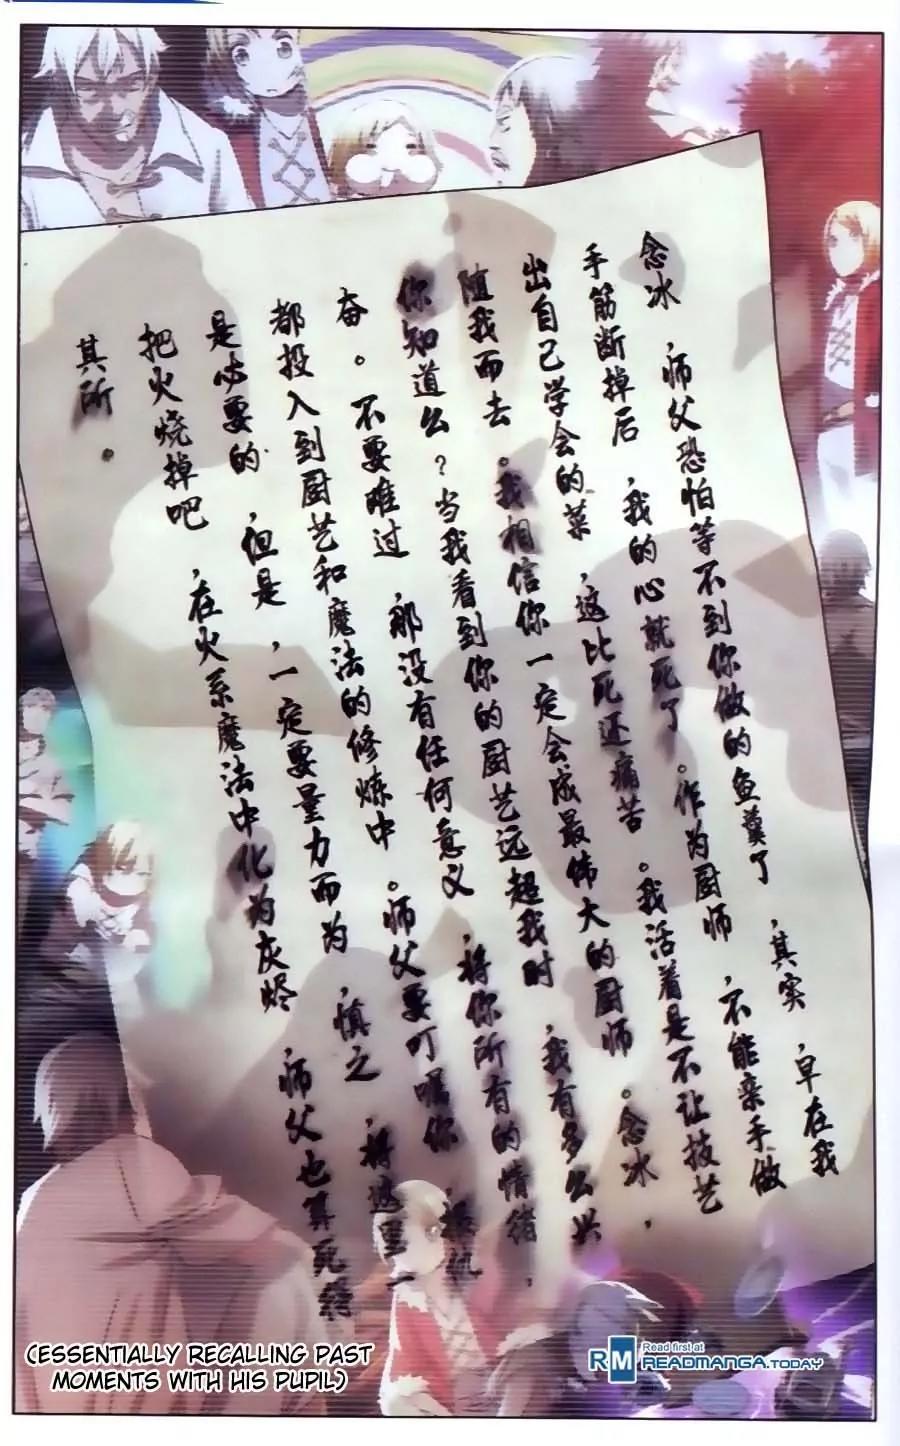 念冰，师父恐怕等不到你做的鱼羹了，其实，早在我
手筋断掉后，我的心就死了。作为厨师，不能亲手做
出自己学会的菜，这比死还痛苦。我活着是不让技艺
随我而去。我相信你一定会成最伟大的厨师。念冰，
你知道么？当我看到你的厨艺远超我时，我有多么兴
奋。不要难过，那没有任何意义，将你所有的情绪，
都投入到厨艺和魔法的修炼中。师父要叮嘱你，报仇
是必要的，但是，一定要量力而为，慎之，将这里一
把火烧掉吧，在火系魔法中化为灰烬，师父也算死得
其所。
(ESSENTIALLY RECALLING PAST
MOMENTS WITH HIS PUPIL)
RM Read first at
READMANGA.TODAY